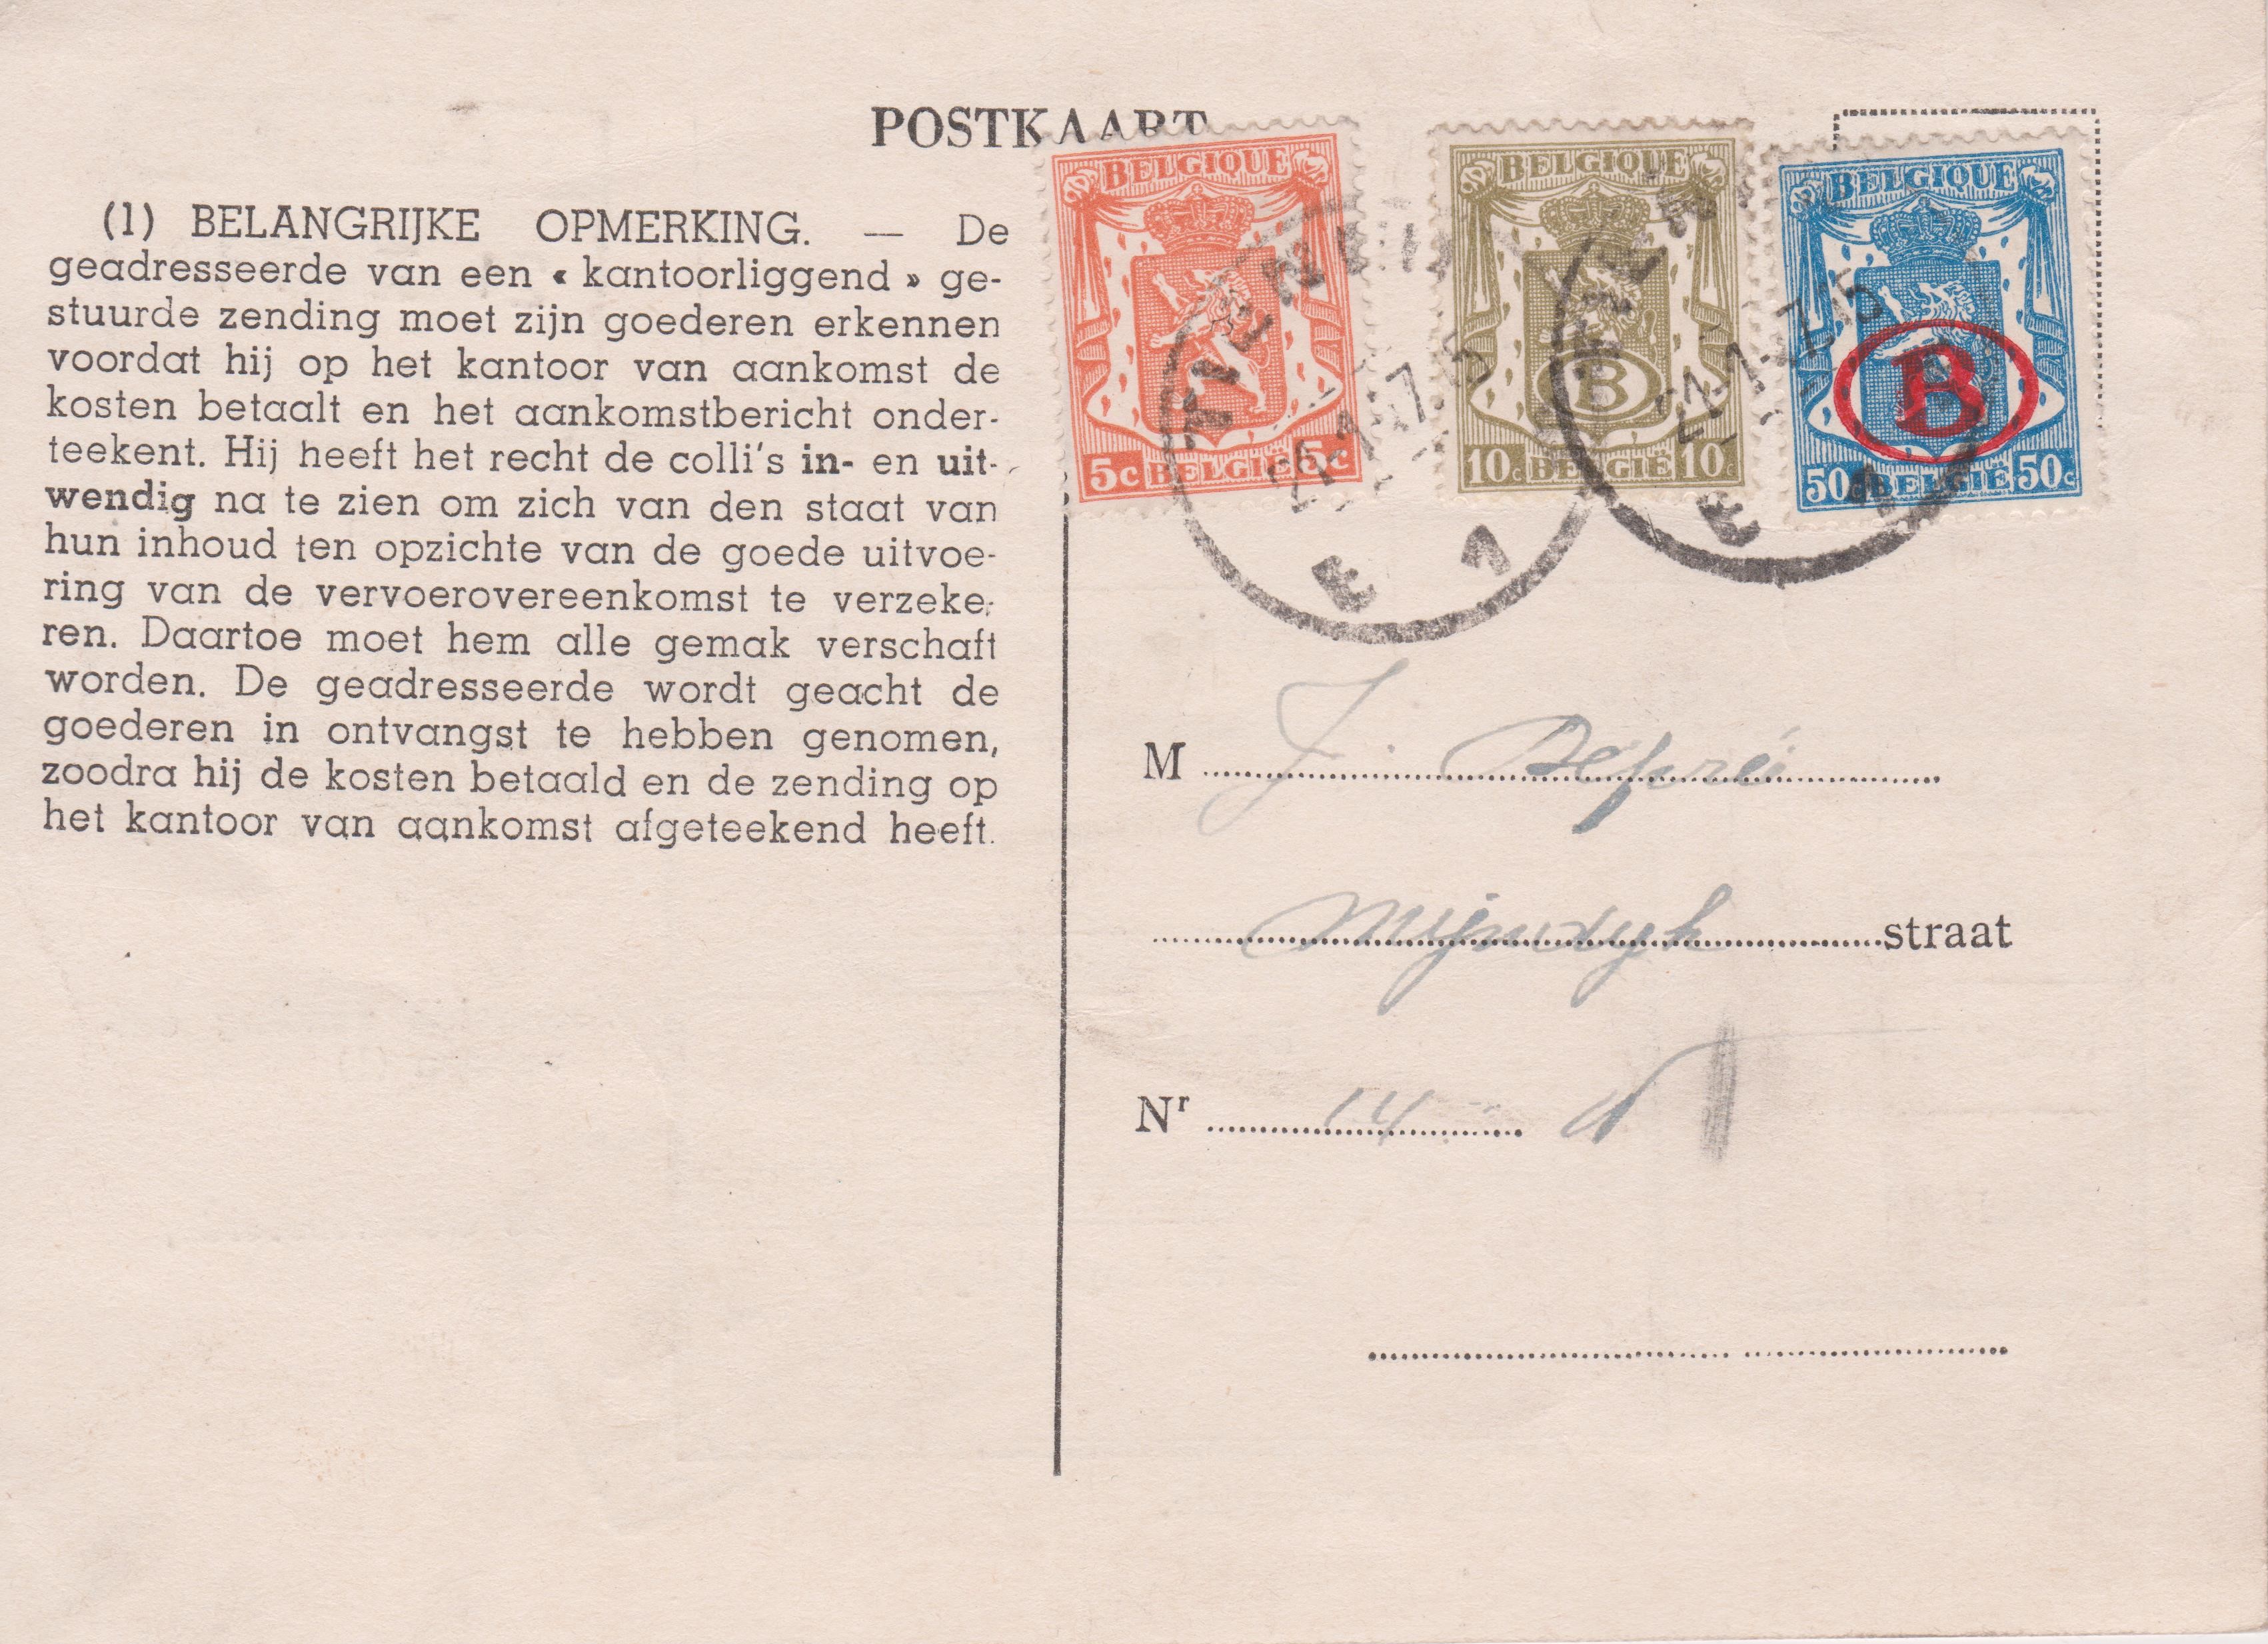 POSTKAART
(1) BELANGRIJKE OPMERKING. — De
geadresseerde van een « kantoorliggend » ge-
stuurde zending moet zijn goederen erkennen
voordat hij op het kantoor van aankomst de
kosten betaalt en het aankomstbericht onder-
teekent. Hij heeft het recht de colli's in- en uit-
wendig na te zien om zich van den staat van
hun inhoud ten opzichte van de goede uitvoe-
ring van de vervoerovereenkomst te verzeke-
ren. Daartoe moet hem alle gemak verschaft
worden. De geadresseerde wordt geacht de
goederen in ontvangst te hebben genomen,
zoodra hij de kosten betaald en de zending op
het kantoor van aankomst afgeteekend heeft.
BELGIQUE
5c BELGIË 5c
BELGIQUE
B
10c BELGIË 10c
BELGIQUE
B
50c BELGIË 50c
E 1
E 1
M J. Depré
straat
Nr 14